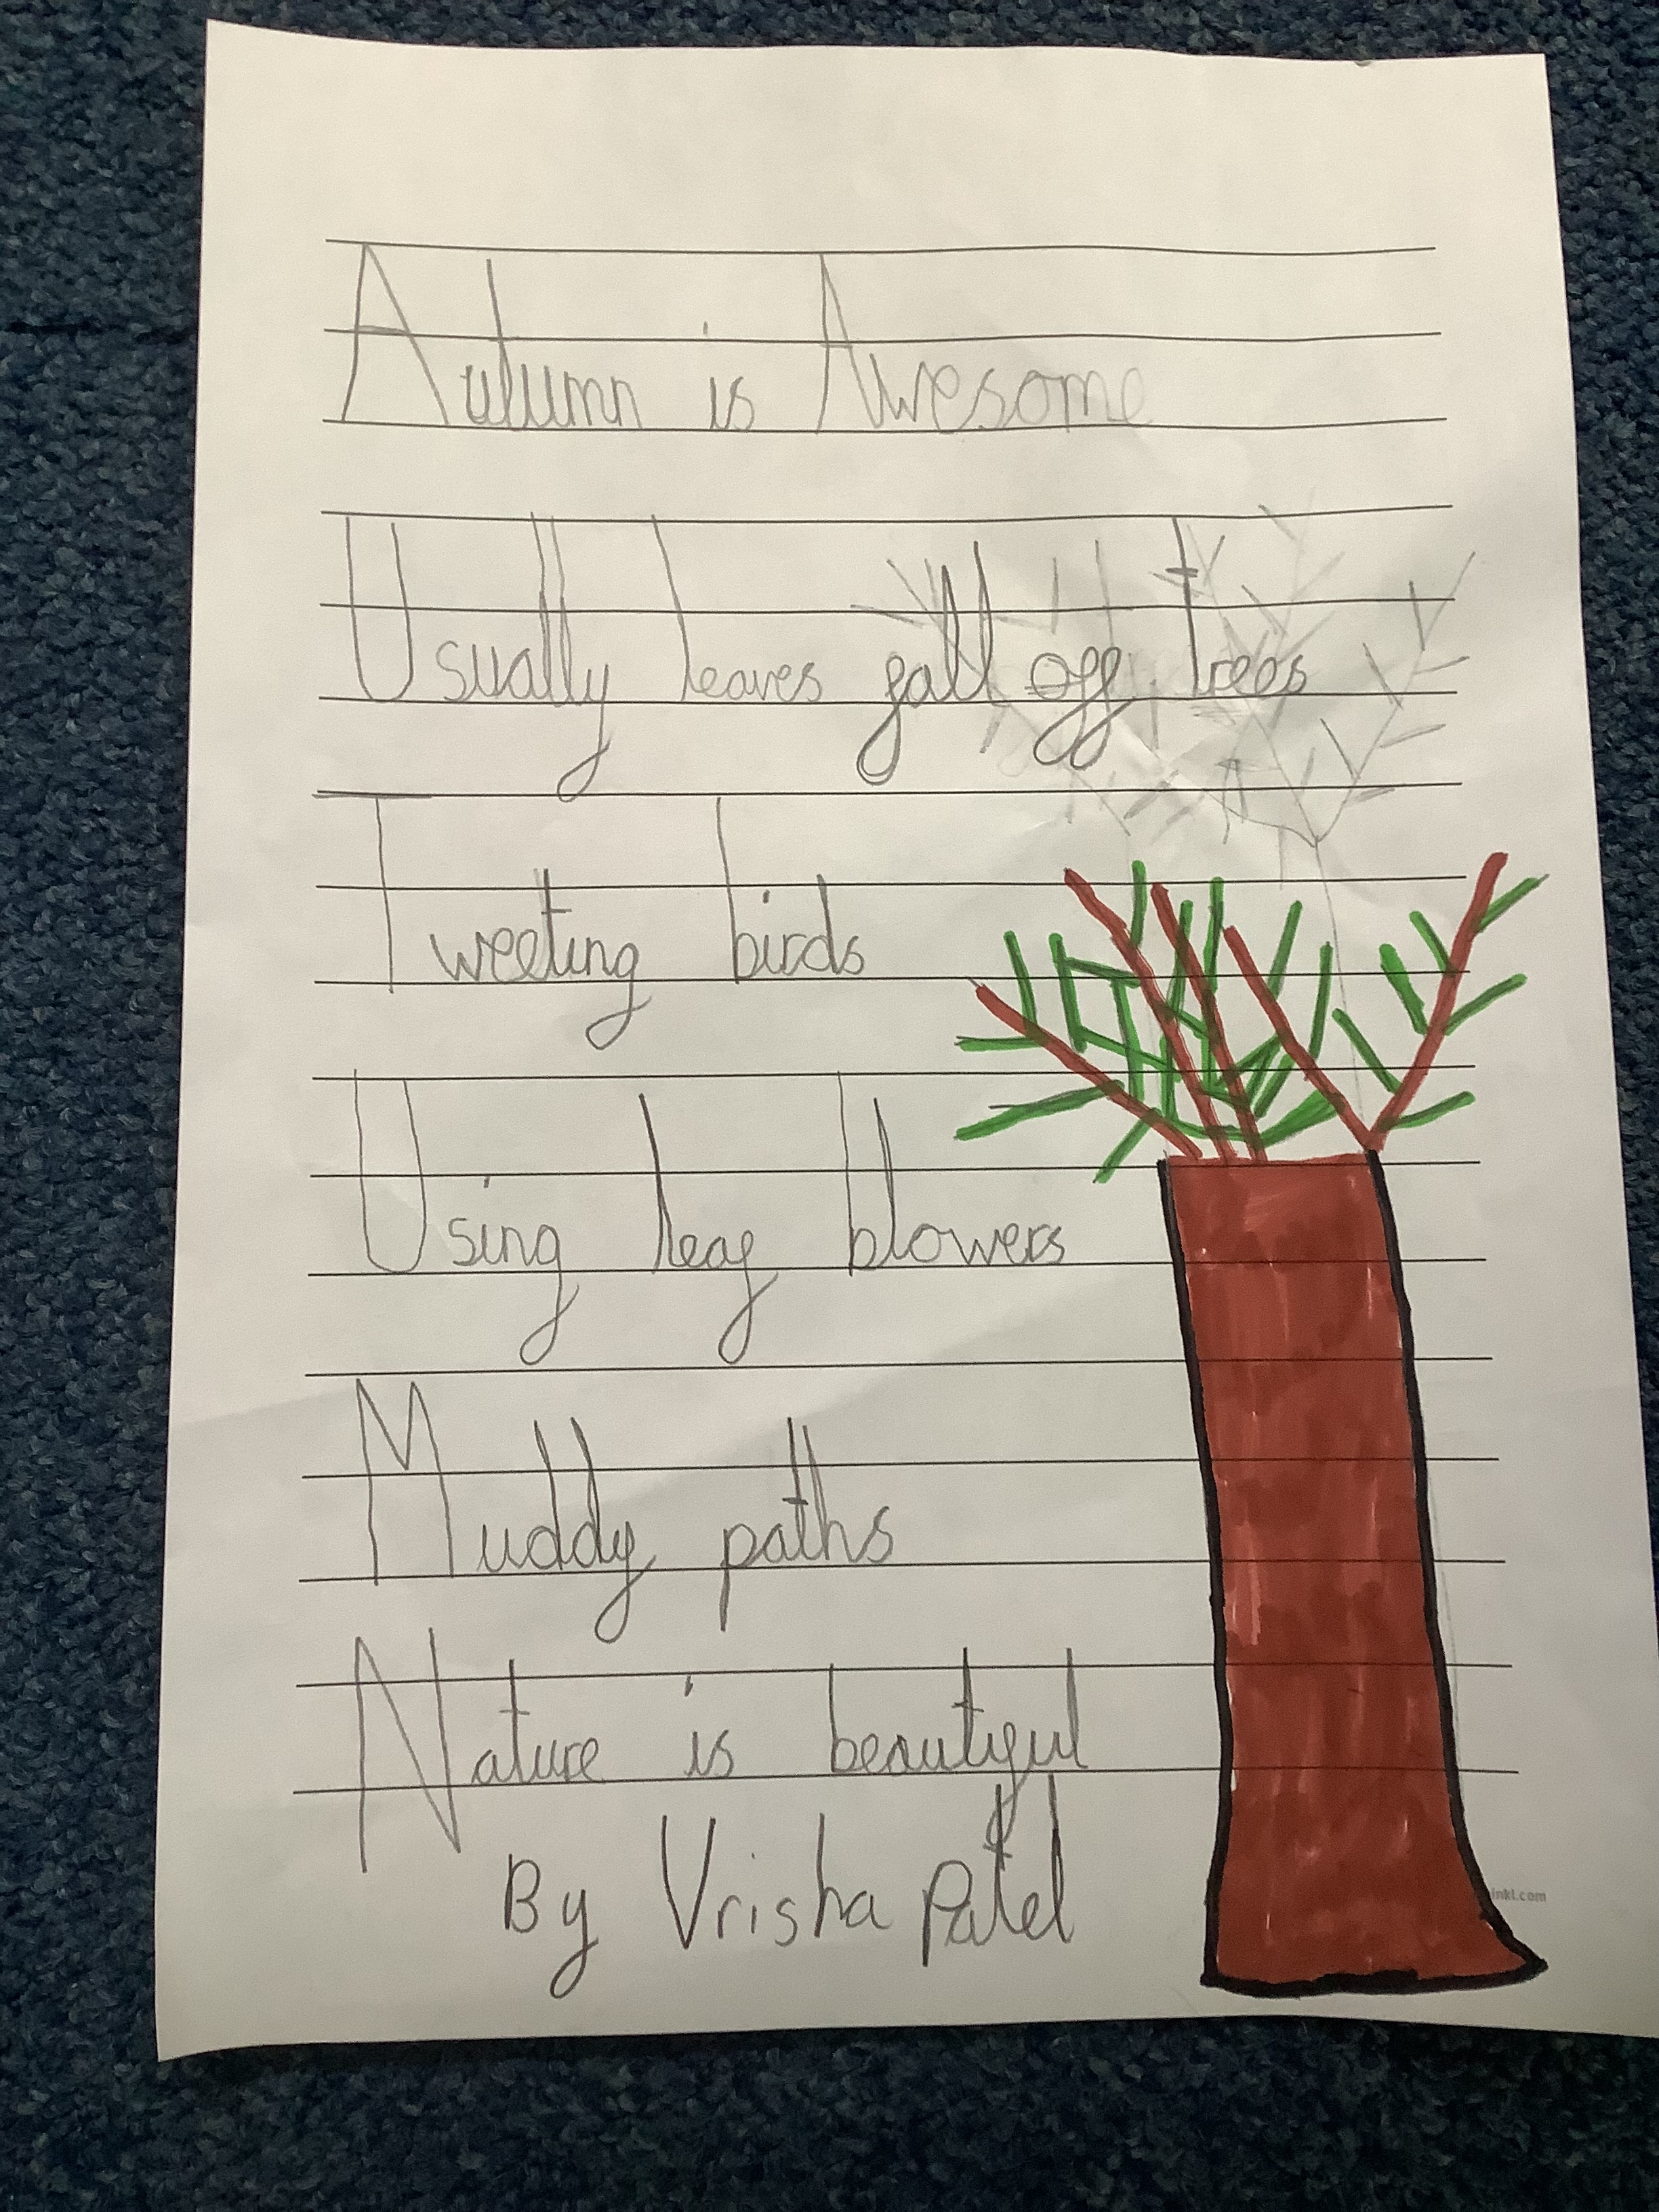 Autumn is Awesome
Usually leaves fall off trees
Tweeting birds
Using leaf blowers
Muddy paths
Nature is beautiful
By Vrisha Patel
inkl.com